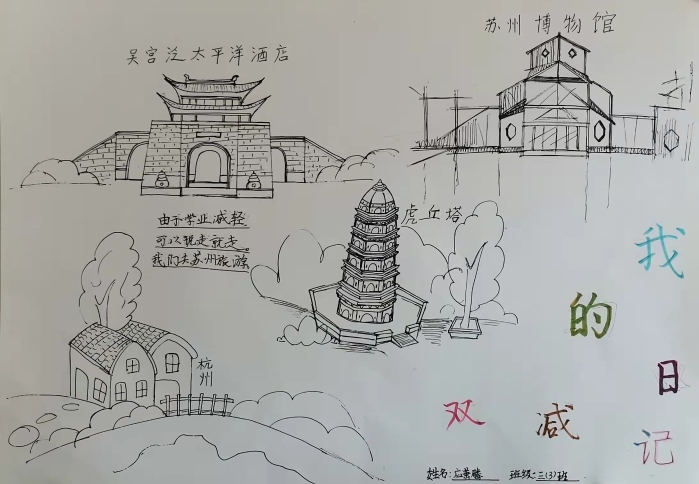 苏州博物馆
吴宫泛太平洋酒店
由于学业减轻
可以说走就走。
我们去苏州旅游
虎丘塔
杭州
我的日记
双减
姓名:应萧腾 班级:三(3)班